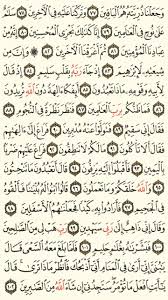 وَجَعَلْنَا ذُرِّيَّتَهُۥ هُمُ ٱلْبَاقِينَ ٧٧ وَتَرَكْنَا عَلَيْهِ فِى ٱلْءَاخِرِينَ ٧٨ سَلَٰمٌ
عَلَىٰ نُوحٍ فِى ٱلْعَٰلَمِينَ ٧٩ إِنَّا كَذَٰلِكَ نَجْزِى ٱلْمُحْسِنِينَ ٨٠ إِنَّهُۥ مِنْ
عِبَادِنَا ٱلْمُؤْمِنِينَ ٨١ ثُمَّ أَغْرَقْنَا ٱلْءَاخَرِينَ ٨٢ ۞ وَإِنَّ مِن
شِيعَتِهِۦ لَإِبْرَٰهِيمَ ٨٣ إِذْ جَآءَ رَبَّهُۥ بِقَلْبٍ سَلِيمٍ ٨٤ إِذْ قَالَ
لِأَبِيهِ وَقَوْمِهِۦ مَاذَا تَعْبُدُونَ ٨٥ أَئِفْكًا ءَالِهَةً دُونَ ٱللَّهِ تُرِيدُونَ ٨٦
فَمَا ظَنُّكُم بِرَبِّ ٱلْعَٰلَمِينَ ٨٧ فَنَظَرَ نَظْرَةً فِى ٱلنُّجُومِ ٨٨
فَقَالَ إِنِّى سَقِيمٌ ٨٩ فَتَوَلَّوْا۟ عَنْهُ مُدْبِرِينَ ٩٠ فَرَاغَ إِلَىٰٓ ءَالِهَتِهِمْ
فَقَالَ أَلَا تَأْكُلُونَ ٩١ مَا لَكُمْ لَا تَنطِقُونَ ٩٢ فَرَاغَ عَلَيْهِمْ ضَرْبًۢا
بِٱلْيَمِينِ ٩٣ فَأَقْبَلُوٓا۟ إِلَيْهِ يَزِفُّونَ ٩٤ قَالَ أَتَعْبُدُونَ مَا تَنْحِتُونَ ٩٥
وَٱللَّهُ خَلَقَكُمْ وَمَا تَعْمَلُونَ ٩٦ قَالُوا۟ ٱبْنُوا۟ لَهُۥ بُنْيَٰنًا فَأَلْقُوهُ فِى ٱلْجَحِيمِ
٩٧ فَأَرَادُوا۟ بِهِۦ كَيْدًا فَجَعَلْنَٰهُمُ ٱلْأَسْفَلِينَ ٩٨
وَقَالَ إِنِّى ذَاهِبٌ إِلَىٰ رَبِّى سَيَهْدِينِ ٩٩ رَبِّ هَبْ لِى مِنَ ٱلصَّٰلِحِينَ
١٠٠ فَبَشَّرْنَٰهُ بِغُلَٰمٍ حَلِيمٍ ١٠١ فَلَمَّا بَلَغَ مَعَهُ ٱلسَّعْىَ قَالَ
يَٰبُنَىَّ إِنِّىٓ أَرَىٰ فِى ٱلْمَنَامِ أَنِّىٓ أَذْبَحُكَ فَٱنظُرْ مَاذَا تَرَىٰ قَالَ
يَٰٓأَبَتِ ٱفْعَلْ مَا تُؤْمَرُ سَتَجِدُنِىٓ إِن شَآءَ ٱللَّهُ مِنَ ٱلصَّٰبِرِينَ ١٠٢